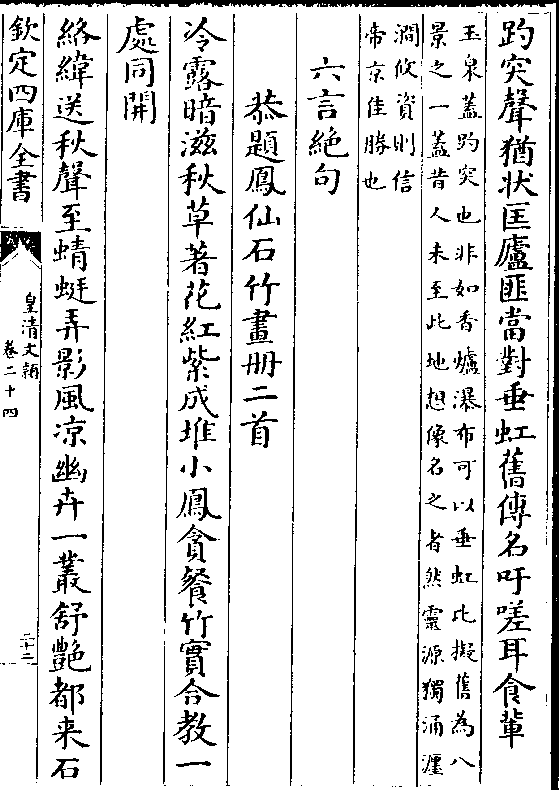 趵突聲猶狀匡廬匪當對垂虹舊傳名吁嗟耳食輩
玉泉蓋趵突也非如香爐瀑布可以垂虹比擬舊為八
景之一蓋昔人未至此地想像名之者然靈源獨涌瀍
澗攸資則信
帝京佳勝也
六言絶句
恭題鳳仙石竹畫册二首
冷露暗滋秋草著花紅紫成堆小鳳貪餐竹實合教一
處同開
絡緯送秋聲至蜻蜓弄影風凉幽卉一叢舒艶都来石
欽定四庫全書
皇清文穎
卷二十四
二十二